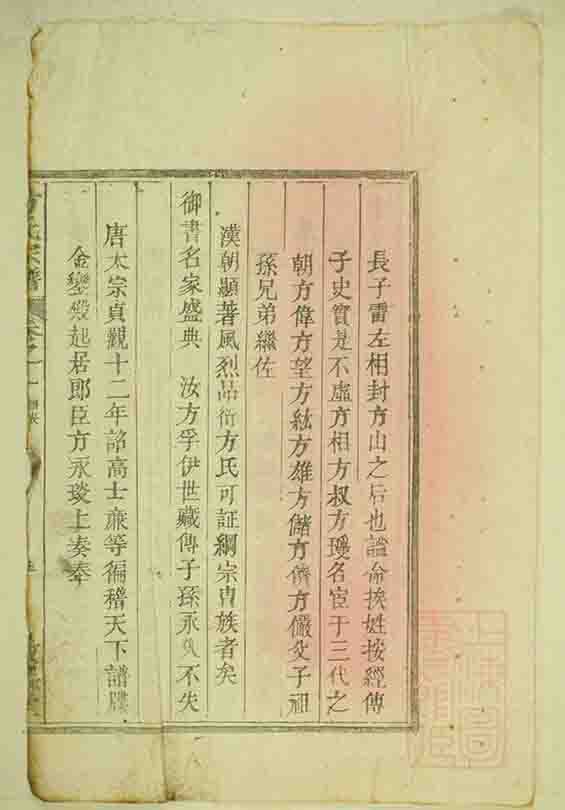 長子雷左相封方山之后也諡侖挨姓按經傳
子史實是不虛方相方叔方𤩽名宦于三代之
朝方偉方望方紘方雄方儲方儕方儼父子祖
孫兄弟繼佐
漢朝顯著風烈品衍方氏可証綱宗冑族者矣
御書名家盛典 汝方孚伊世藏傳子孫永久不失
唐太宗貞觀十二年詔高士廉等徧稽天下譜牒
金鑾殿起居郎臣方永琰上奏奉
方氏宗譜 卷之一